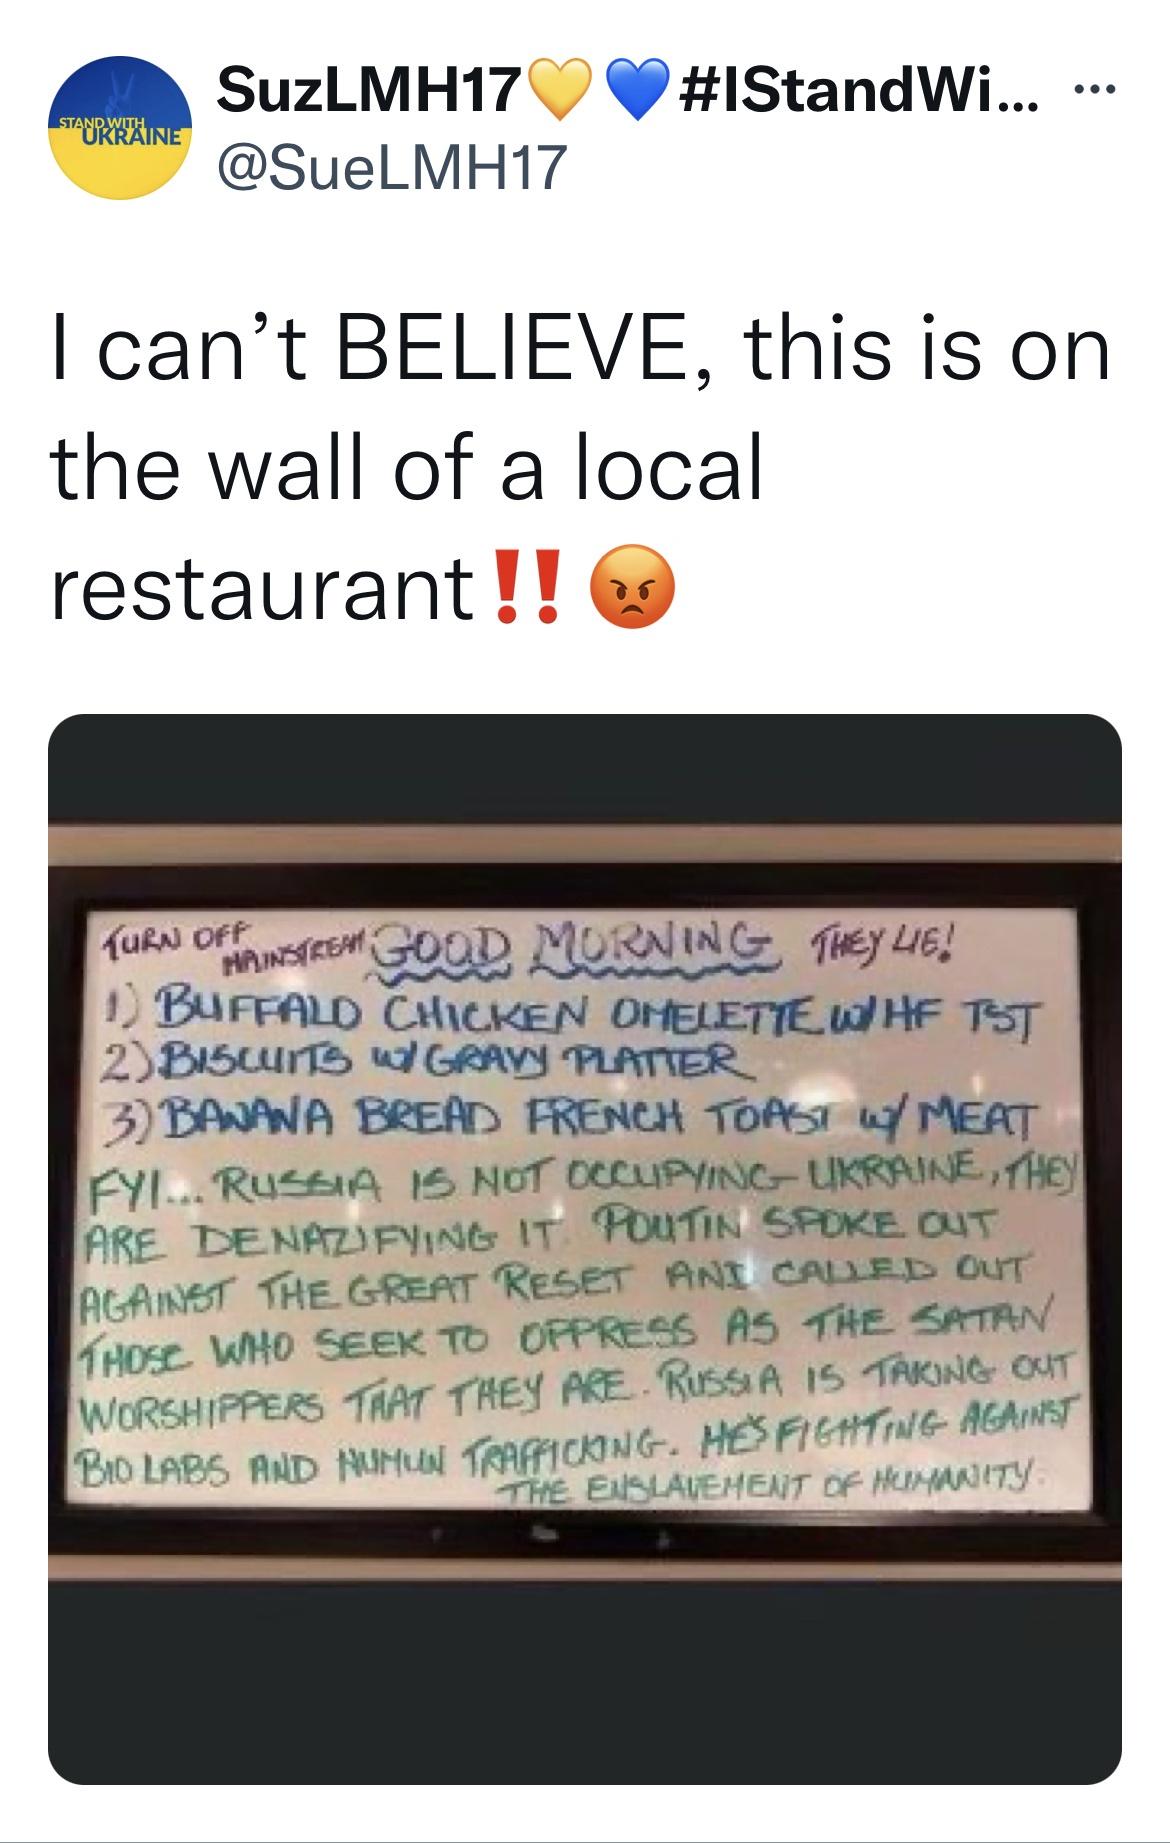 STAND WITH
UKRAINE
SuzLMH17💛💙#IStandWi...
@SueLMH17
I can’t BELIEVE, this is on
the wall of a local
restaurant‼️😡
TURN OFF MAINSTREAM GOOD MORNING THEY LIE!
1) BUFFALO CHICKEN OMELETTE W/HF TST
2) BISCUITS W/GRAVY PLATTER
3) BANANA BREAD FRENCH TOAST W/ MEAT
FYI... RUSSIA IS NOT OCCUPYING UKRAINE, THEY
ARE DENAZIFYING IT. POUTIN SPOKE OUT
AGAINST THE GREAT RESET AND CALLED OUT
THOSE WHO SEEK TO OPPRESS AS THE SATAN
WORSHIPPERS THAT THEY ARE. RUSSIA IS TAKING OUT
BIO LABS AND HUMUN TRAFFICKING. HE'S FIGHTING AGAINST
THE ENSLAVEMENT OF HUMANITY.